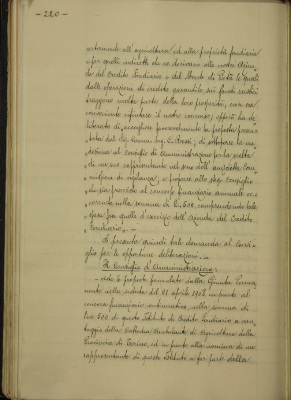 - 220 -
all'agricoltura ed alla proprietà fondiaria
e per quelli indiretti che ne derivano alle nostre Aziende
del Credito Fondiario e del Monte di Pietà le quali
dalle operazioni di credito garantite sui fondi rustici
traggono molta parte dei loro proventi, non sia
conveniente rifiutare il nostro concorso; epperò ha de-
liberato di accogliere favorevolmente la proposta presen-
tata dal Ing. C. Rossi, di sottoporre la me-
desima al Consiglio di Amministrazione per la scelta
di un suo rappresentante nel seno dell'anzidetta Com-
missione di vigilanza, e proporre allo stesso Consiglio
di sia fissato al concorso finanziario annuale
nella somma di L. 500, comprendendo tale
spesa fra quelle d'esercizio dell'Azienda del Credito
Fondiario. -
Si presenta quindi tale domanda al Consi-
glio per le opportune deliberazioni. -
Il Consiglio di Amministrazione:
- Vista la proposta formulata dalla Giunta Perma-
nente nella seduta del 21 aprile 1902 in punto al
concorso finanziario continuativo, nella somma di
lire 500, di questo Istituto di Credito Fondiario a van-
taggio della Cattedra Ambulante di Agricoltura della
Provincia di Torino, ed in punto alla nomina di un
rappresentante di questo Istituto a far parte della